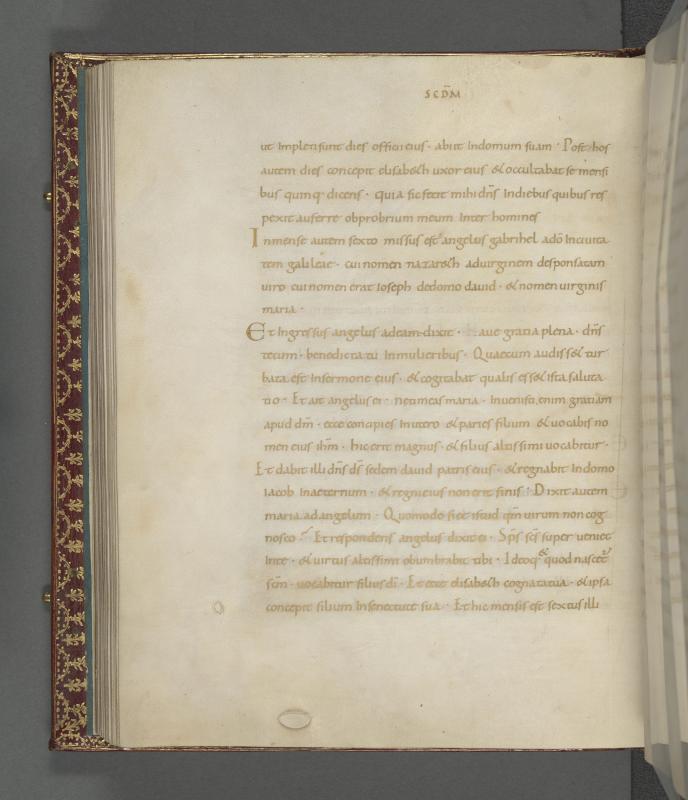 SCDM̄
ut Impleti sunt dies officii eius · abiit Indomum suam · Post hos
autem dies concepit elisabeth uxor eius & occultabat se mensi
bus quinq· dicens · quia sic fecit mihi dn̄s Indiebus quibus res
pexit auferre obprobrium meum Inter homines
Inmense autem sexto missus est angelus gabrihel adō Inciuita
tem galileae · cui nomen nazareth aduirginem desponsatam
uiro cui nomen erat Ioseph dedomo dauid · & nomen uirginis
maria ·
Et Ingressus angelus adeam dixit · aue gratia plena · dn̄s
tecum · benedicta tu Inmulieribus · Quaecum audiss& tur
bata est Insermone eius · & cogitabat qualis ess& ista saluta
tio · Et ait angelus ei · netimeas maria · Inuenisti enim gratiam
apud dm̄ · ecce concipies Inutero & paries filium & uocabis no
men eius ihm̄ · hic erit magnus · & filius altissimi uocabitur ·
Et dabit illi dn̄s ds̄ sedem dauid patris eius · & regnabit Indomo
iacob Inaeternum · & regni eius non erit finis · Dixit autem
maria ad angelum · Quomodo fiet istud qm̄ uirum non cog
nosco · Et respondens angelus dixit ei · Sp̄s sc̄s super ueniet
Inte · & uirtus altissimi obumbrabit tibi · Ideoq· & quod nascet̄
sc̄m · uocabitur filius dī · Et ecce elisabeth cognata tua · & ipsa
concepit filium Insenectute sua · Et hic mensis est sextus illi